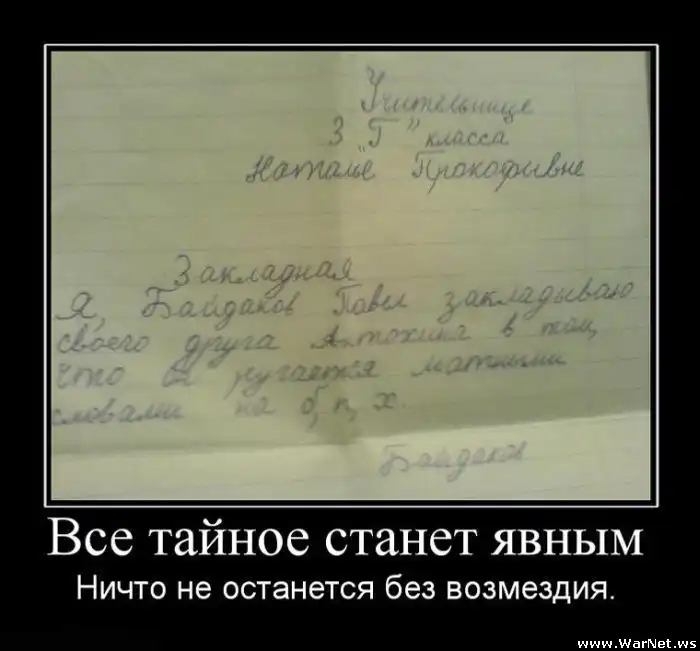 Учительнице
3 "Г" класса
Наталье Прокофивне
Закладная
Я, Байдаков Павел закладываю
своего друга Антохина в том,
что он ругается матными
словами на б, п, х.
Байдаков
Все тайное станет явным
Ничто не останется без возмездия.
www.WarNet.ws